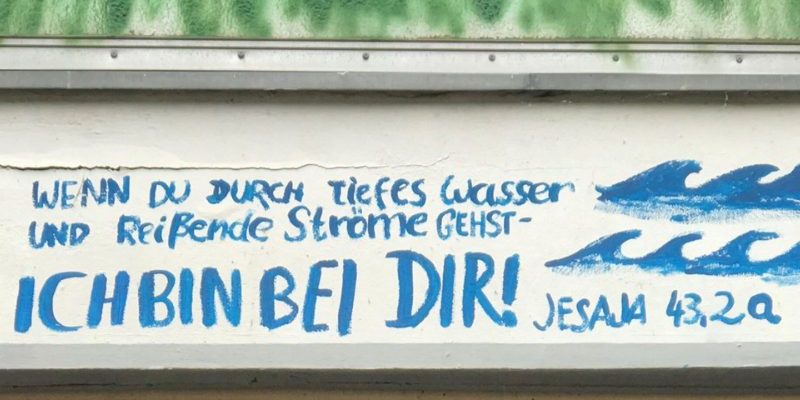 WENN DU DURCH tiefes Wasser
UND Reißende Ströme GEHST-
ICH BIN BEI DIR! JESAJA 43,2a